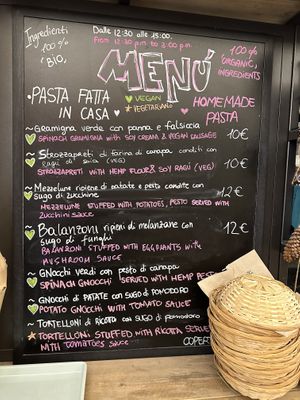 Ingredienti
100 %
BIO,
Dalle 12:30 alle 15:00.
From 12:30 p.m to 3:00 p.m.
MENÚ
100 %
ORGANIC
INGREDIENTS
• PASTA FATTA
IN CASA
VEGAN
VEGETARIANO
HOMEMADE
PASTA
~ Gramigna verde con panna e salsiccia
SPINACH GRAMIGNA WITH SOY CREAM & VEGAN SAUSAGE
10€
~ Strozzapreti di farina di canapa conditi con
ragù di soia (VEG)
STROZZAPRETI WITH HEMP FLOUR & SOY RAGÙ (VEG)
10€
~ Mezzelune ripiene di patate e pesto condite con
sugo di zucchine
MEZZELUNE STUFFED WITH POTATOES, PESTO SERVED WITH
zucchini sauce
12€
~ Balanzoni ripieni di melanzane con
sugo di funghi
BALANZONI STUFFED WITH EGGPLANTS WITH
MUSHROOM SAUCE
12€
~ GNOCCHI verdi con pesto di canapa
SPINACH GNOCCHI SERVED WITH HEMP PESTO
~ GNOCCHI DI PATATE CON SUGO DI POMODORO
POTATO GNOCCHI WITH TOMATO SAUCE
~ TORTELLONI DI RICOTTA CON SUGO DI pomodoro
TORTELLONI STUFFED WITH RICOTTA SERVE
WITH TOMATOES SAUCE
COPER